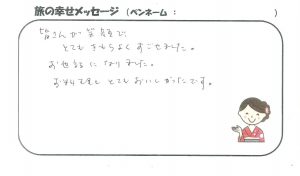 旅の幸せメッセージ（ペンネーム：　　　　）
皆さんが笑顔で、
とてもきもちよくすごせました。
お世話になりました。
お料理もとてもおいしかったです。